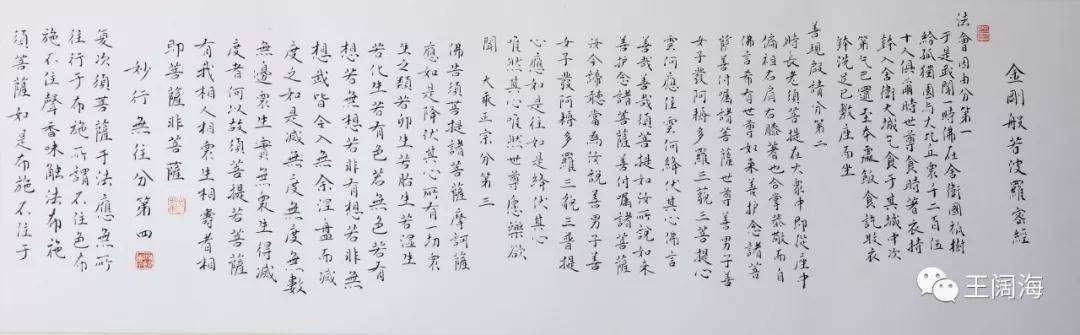 金剛般若波羅蜜經
法會因由分第一
于是我聞一時佛在舍衛國祇樹
給孤獨園与大比丘眾千二百五
十人俱爾時世尊食時著衣持
鉢入舍衛大城乞食于其城中次
第乞已還至本處飯食訖收衣
鉢洗足已敷座而坐
善現啟請分第二
時長老須菩提在大眾中即從座中
偏袒右肩右膝著地合掌恭敬而白
佛言希有世尊如來善护念諸菩
薩善付囑諸菩薩世尊善男子善
女子發阿耨多羅三藐三菩提心
雲何應住雲何降伏其心佛言
善哉善哉須菩提如汝所說如來
善护念諸菩薩善付囑諸菩薩
汝今諦聽當為汝說善男子善
女子發阿耨多羅三藐三菩提
心應如是住如是降伏其心
唯然其心唯然世尊愿樂欲
聞 大乘正宗分第三
佛告須菩提諸菩薩摩訶薩
應如是降伏其心所有一切衆
生之類若卵生若胎生若濕生
若化生若有色若無色若有
想若無想若非有想若非無
想我皆令入無余涅盤而滅
度之如是滅無度無度無數
無邊衆生實無衆生得滅
度者何以故須菩提若菩薩
有我相人相衆生相壽者相
即菩薩非菩薩
妙行無住分第四
复次須菩薩于法應無所
住行于布施所謂不住色布
施不住聲香味觸法布施
須菩薩如是布施不住于
王阔海